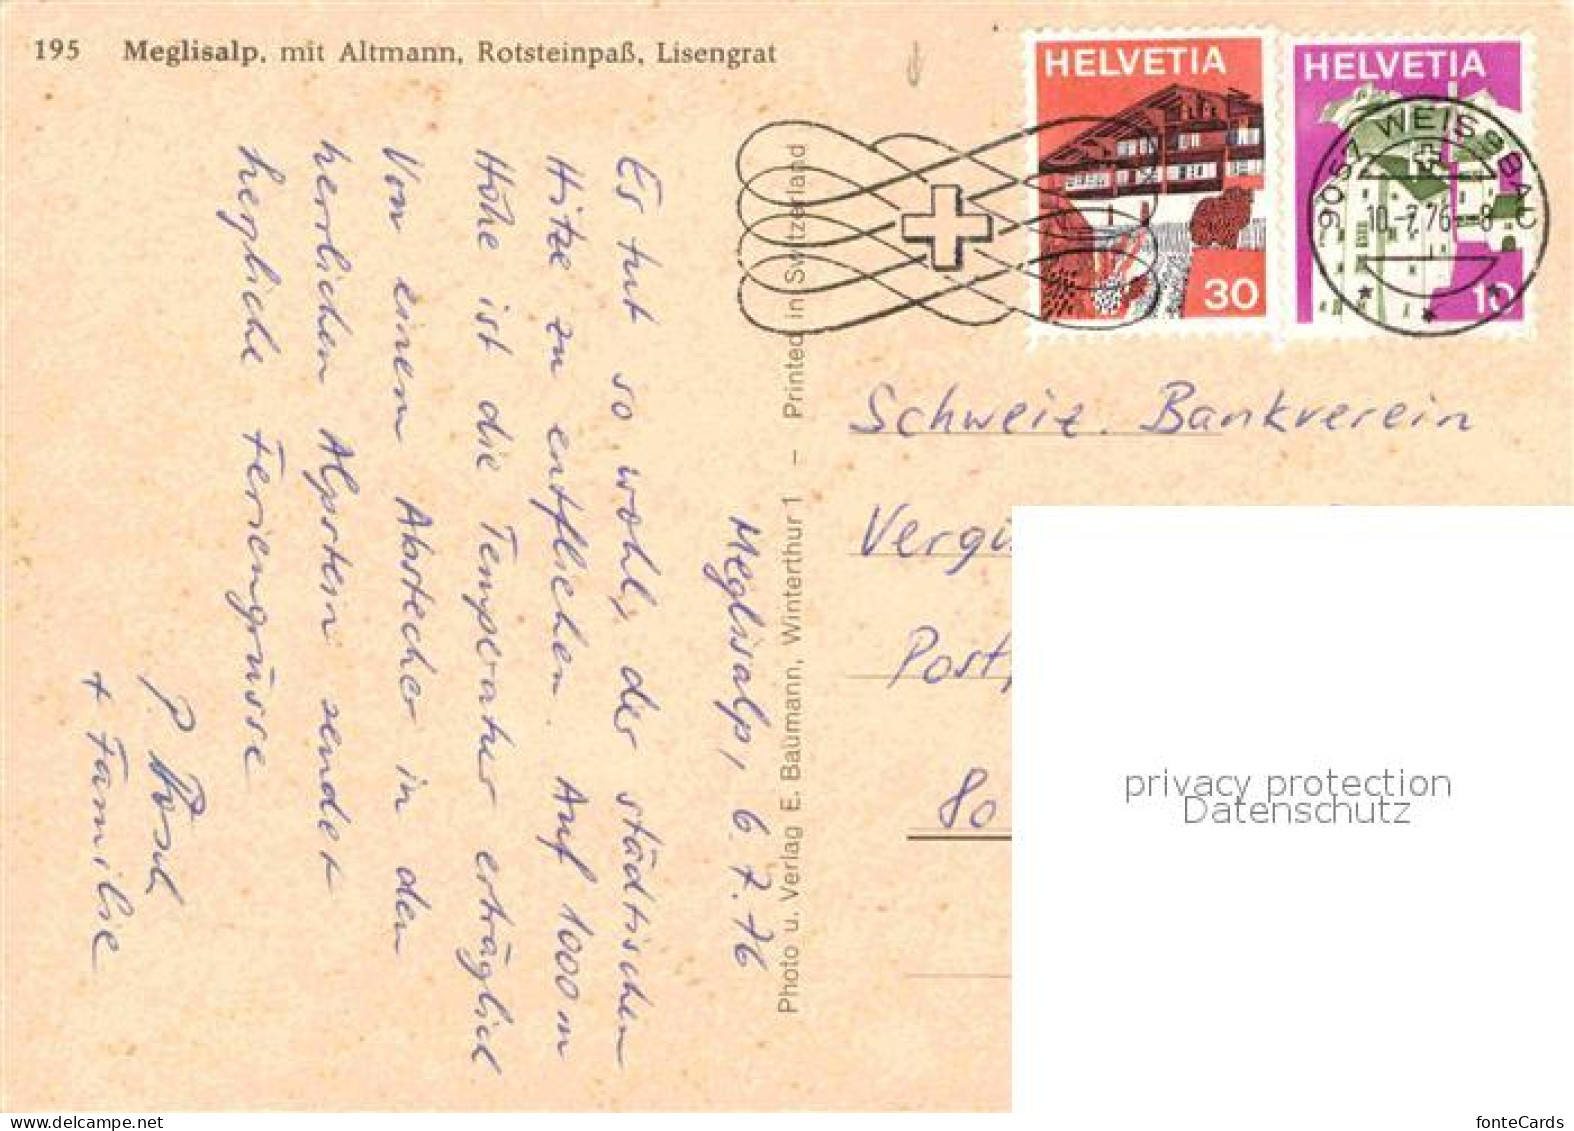 195 Meglisalp, mit Altmann, Rotsteinpaß, Lisengrat
HELVETIA
30
HELVETIA
10
9057 WEISSBAD
10.-7.76--8
Meglisalp, 6.7.76
Es tut so wohl, der städtischen
Hitze zu entfliehen. Auf 1000 m
Höhe ist die Temperatur erträglich
Von einem Abstecher in den
herrlichen Alpstein sendet
herzliche Feriengrüsse
P.
+ Familie
Photo u. Verlag E. Baumann, Winterthur 1 – Printed in Switzerland
Schweiz. Bankverein
80
privacy protection
Datenschutz
www.delcampe.net
fonteCards